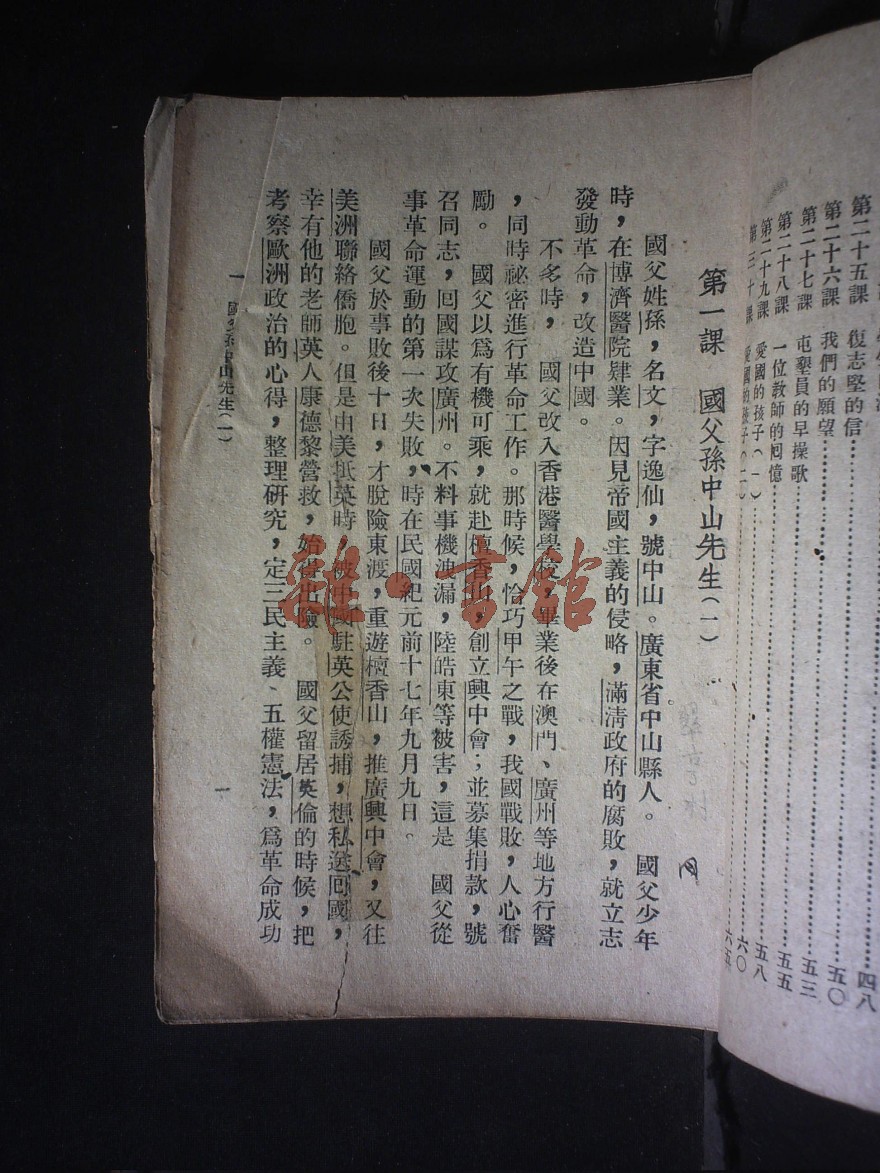 第二十五課 復志堅的信 四八
第二十六課 我們的願望 五〇
第二十七課 屯墾員的早操歌 五三
第二十八課 一位教師的囘憶 五五
第二十九課 愛國的孩子(一) 五八
第三十課 愛國的孩子(二) 六〇
六五
第一課 國父孫中山先生(一)
國父姓孫,名文,字逸仙,號中山。廣東省中山縣人。 國父少年
時,在博濟醫院肄業。因見帝國主義的侵略,滿淸政府的腐敗,就立志
發動革命,改造中國。
不多時, 國父改入香港醫學校,畢業後在澳門、廣州等地方行醫
,同時祕密進行革命工作。那時候,恰巧甲午之戰,我國戰敗,人心奮
勵。 國父以爲有機可乘,就赴檀香山,創立興中會;並募集捐款,號
召同志,囘國謀攻廣州。不料事機洩漏,陸皓東等被害,這是 國父從
事革命運動的第一次失敗,時在民國紀元前十七年九月九日。
國父於事敗後十日,才脫險東渡,重遊檀香山,推廣興中會,又往
美洲聯絡僑胞。但是由美抵英時,被中國駐英公使誘捕,想私送囘國,
幸有他的老師英人康德黎營救,始得出險。 國父留居英倫的時候,把
考察歐洲政治的心得,整理研究,定三民主義、五權憲法,爲革命成功
一 國父孫中山先生(一) 一
雜·書館